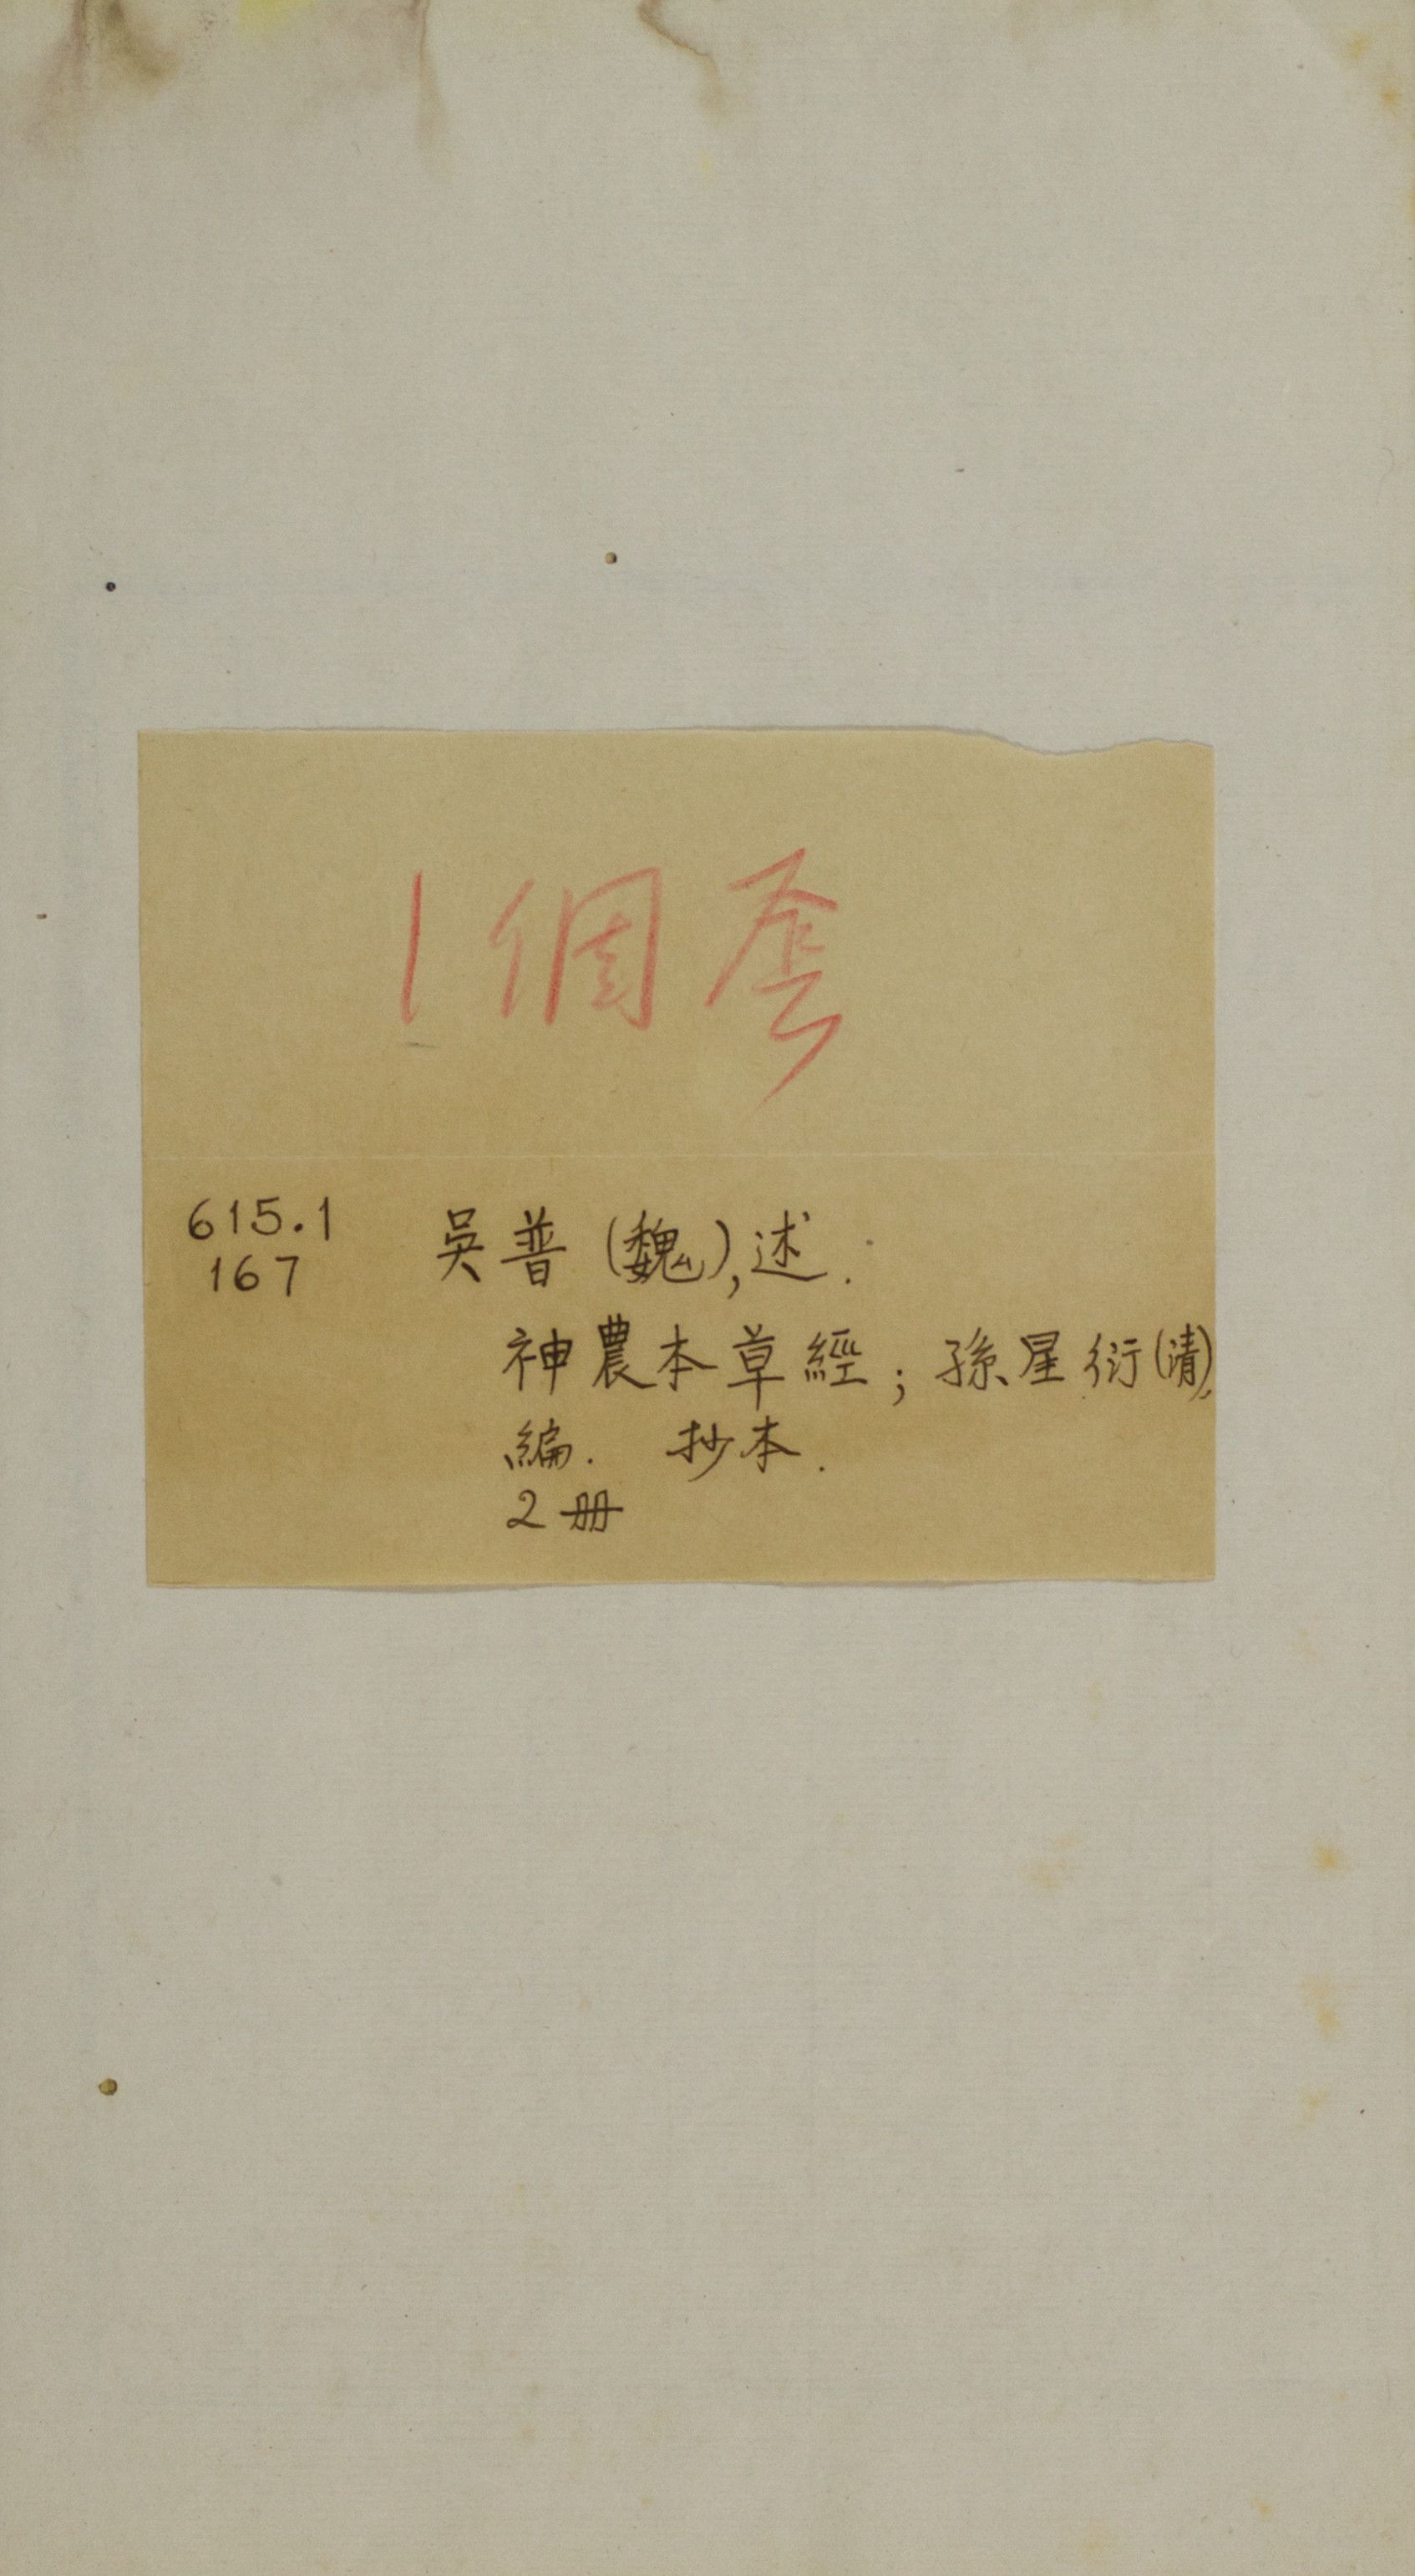 1個套
615.1
167
吳普(魏),述.
神農本草經;孫星衍(清),
編. 抄本.
2冊